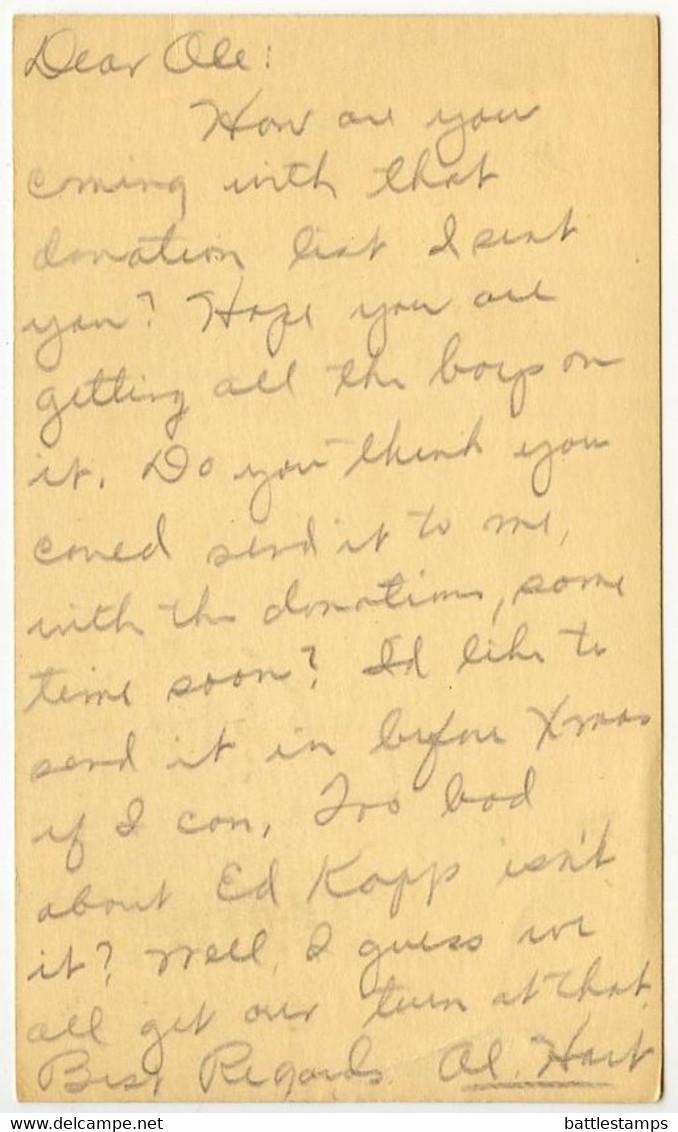 Dear Ole:
How are you
coming with that
donation list I sent
you? Hope you are
getting all the boys on
it. Do you think you
could send it to me,
with the donations, some
time soon? I'd like to
send it in before Xmas
if I can. Too bad
about Ed Kapp isn't
it? Well, I guess we
all get our turn at that.
Best Regards. Al. Hart
battlestamps